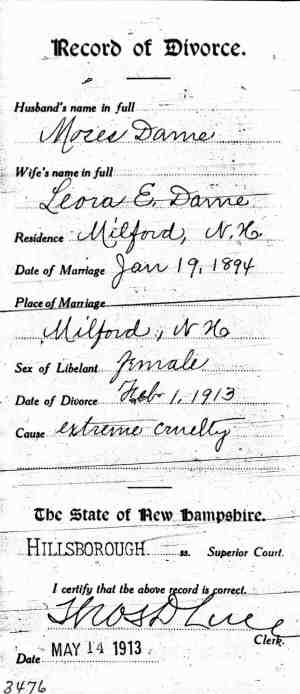 Record of Divorce.
Husband's name in full
Moses Dame
Wife's name in full
Leora E. Dame
Residence Milford, N.H.
Date of Marriage Jan 19, 1894
Place of Marriage
Milford, N H
Sex of Libelant female
Date of Divorce Feb 1, 1913
Cause extreme cruelty
The State of New Hampshire.
HILLSBOROUGH ss. Superior Court.
I certify that the above record is correct.
Thos D Luce
Clerk.
Date MAY 14 1913
3476